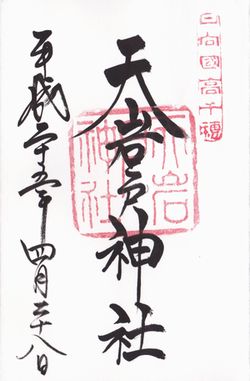 日向國高千穗
天岩戸神社
天岩戸神社
平成二十五年四月二十八日